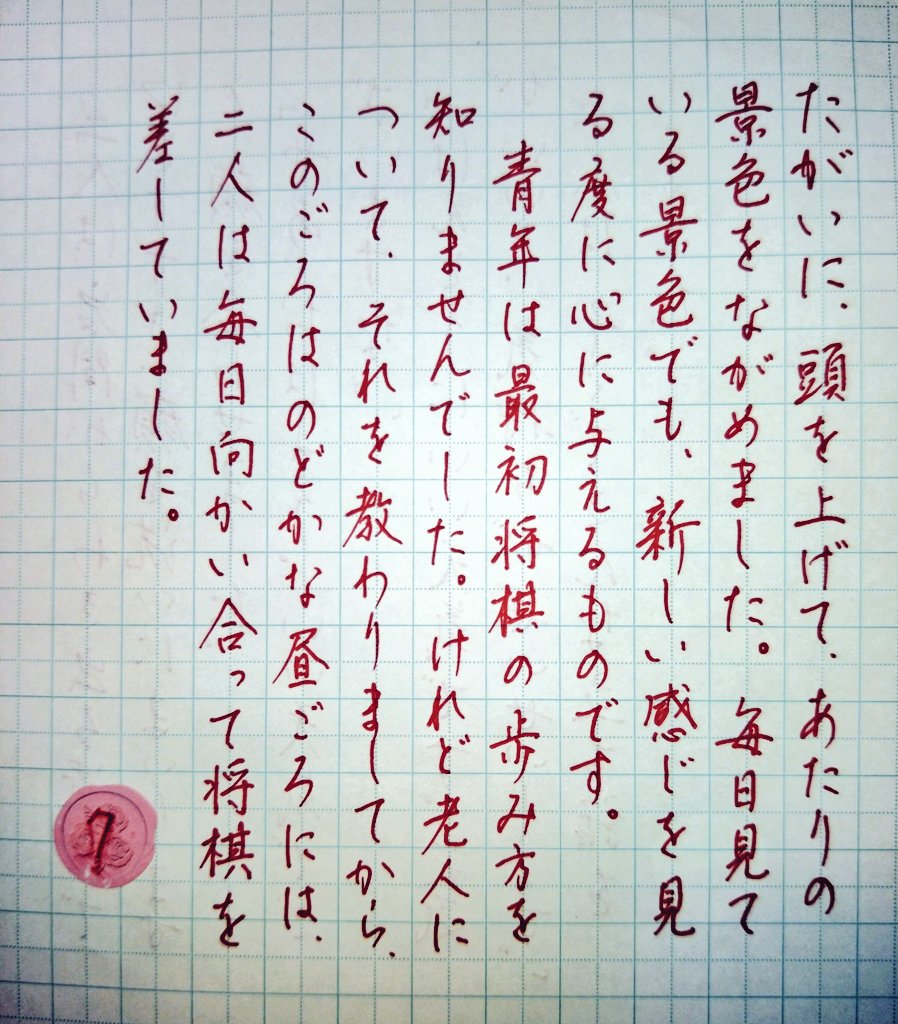 たがいに、頭を上げて、あたりの
景色をながめました。毎日見て
いる景色でも、新しい感じを見
る度に心に与えるものです。
青年は最初将棋の歩み方を
知りませんでした。けれど老人に
ついて、それを教わりましてから、
このごろはのどかな昼ごろには、
二人は毎日向かい合って将棋を
差していました。